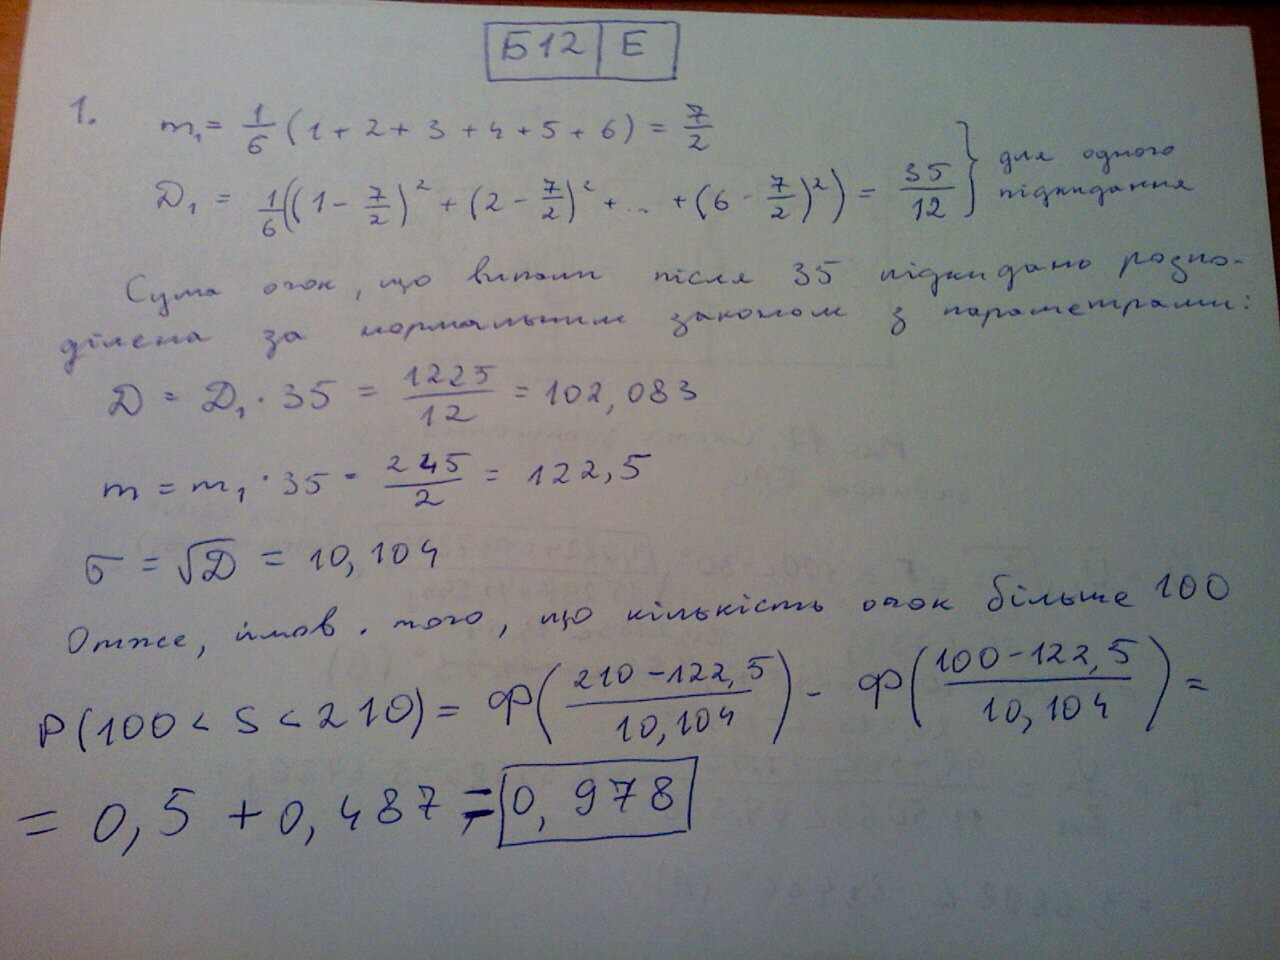 Б12 | Е
1. m₁ = 1/6 (1 + 2 + 3 + 4 + 5 + 6) = 7/2
D₁ = 1/6((1 - 7/2)² + (2 - 7/2)² + ... + (6 - 7/2)²) = 35/12 } для одного підкидання
Сума очок, що випали після 35 підкидано розпо-
ділена за нормальним законом з параметрами:
D = D₁ · 35 = 1225/12 = 102,083
m = m₁ · 35 = 245/2 = 122,5
σ = √D = 10,104
Отже, ймов. того, що кількість очок більше 100
P(100 < S < 210) = Ф((210 - 122,5)/10,104) - Ф((100 - 122,5)/10,104) =
= 0,5 + 0,487 = 0,978